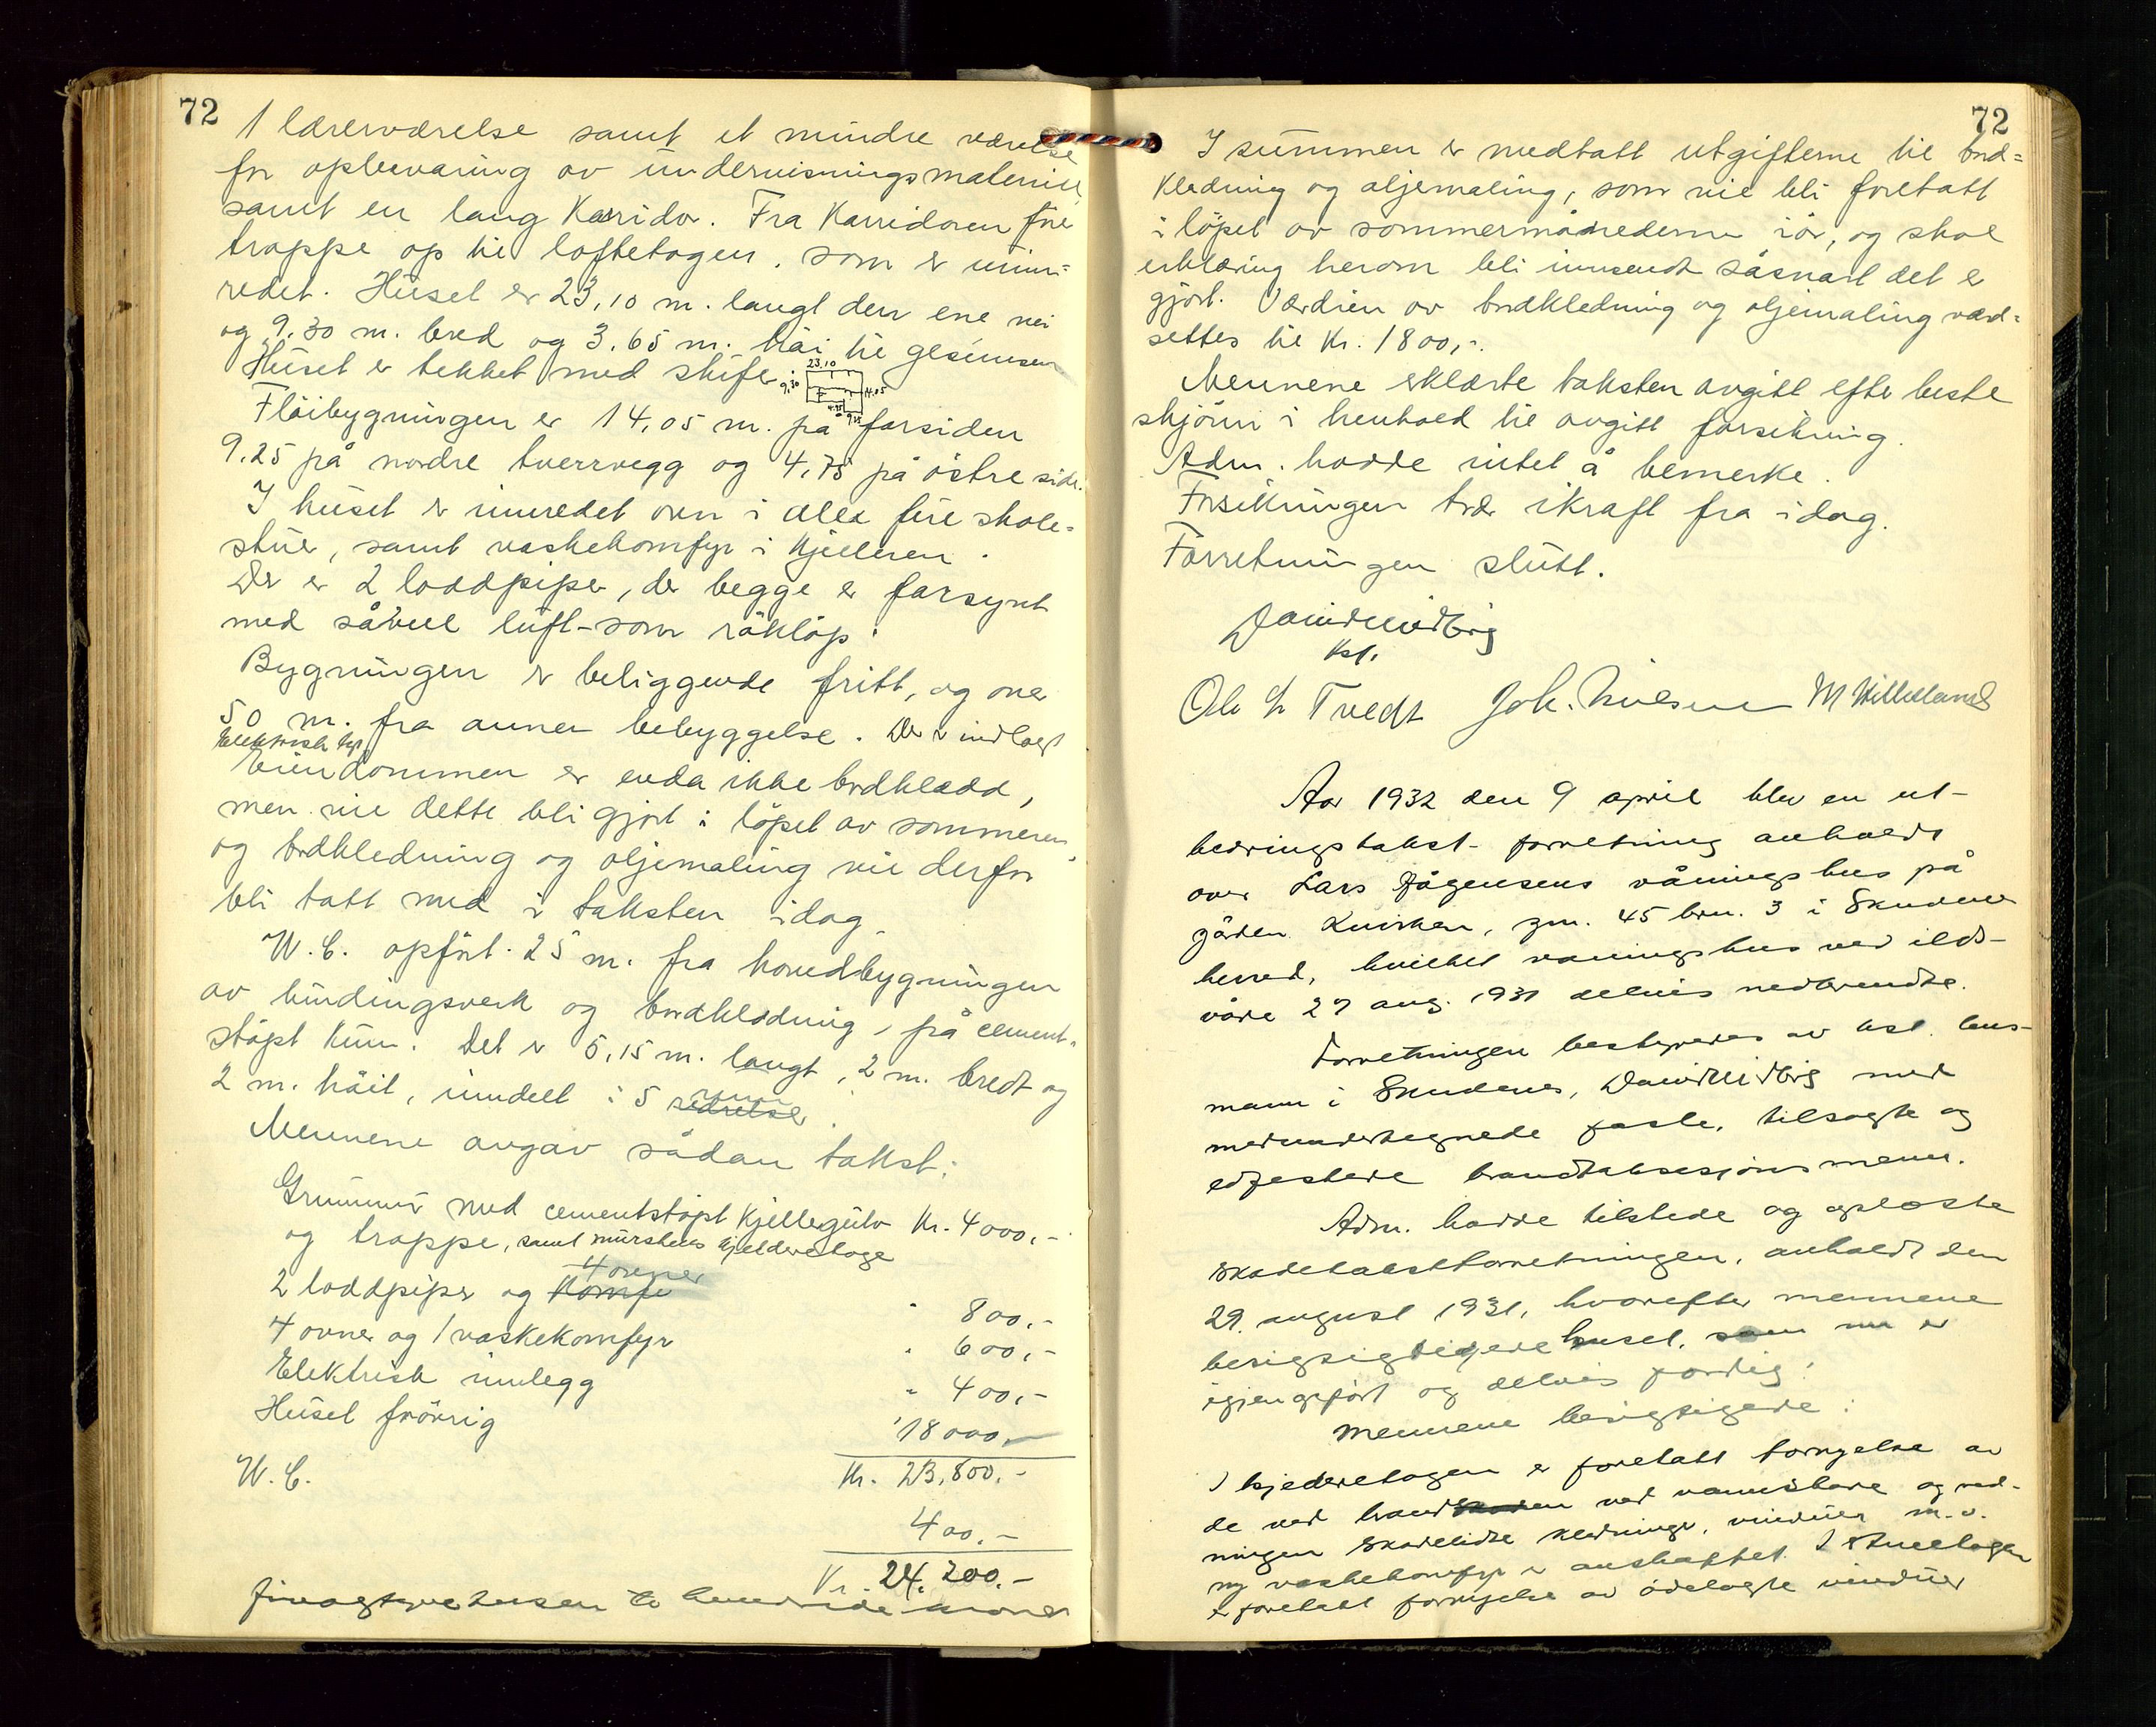 72
1 lærerværelse samt et mindre værelse
for opbevaring av undervisningsmateriell
samt en lang Korridor. Fra Korridoren fører
trappe op til loftetagen, som er uinn-
redet. Huset er 23,10 m. langt den ene vei
og 9.30 m. bred og 3.65 m. höi til gesimsen
Huset er tekket med skifer.
23.10
9.30
14.05
4.75
9.25
Flöibygningen er 14,05 m. på forsiden
9.25 på nordre tverrvegg og 4,75 på östre side.
I huset er innredet ovn i alle fire skole-
stuer, samt vaskekomfyr i Kjelleren.
Der er 2 loddpiper, der begge er forsynt
med såvel luft- som röklöp.
Bygningen er beliggende fritt, og over
50 m. fra annen bebyggelse. Der er indlagt
Elektrisk lys
Eiendommen er enda ikke bordkledd,
men vil dette bli gjort i löpet av sommeren,
og bordkledning og oljemaling vil derfor
bli tatt med i taksten idag.
W.C. opfört 25 m. fra hovedbygningen
av bindingsverk og bordkledning, på cement-
stöpt Kum. Det er 5,15 m. langt, 2 m. bredt og
2 m. höit, inndelt i 5 rum
Mennene avgav sådan takst:
Grunnmur med cementstöpt Kjellergulv Kr. 4000,-
og trappe, samt murstens kjelderetage
4 ovner
2 loddpiper og Komfr " 800,-
4 ovner og 1 vaskekomfyr " 600,-
Elektrisk innlegg " 400,-
Huset forövrig " 18000,-
Kr. 23,800.-
W.C. 400.-
Kr. 24,200.-
firogtyvetusen to hundrede kroner
72
I summen er medtatt utgifterne til bord-
Kledning og oljemaling, som vil bli foretatt
i löpet av sommermånederne iår, og skal
erklæring herom bli innsendt såsnart det er
gjort. Værdien av bordkledning og oljemaling verd-
settes til Kr. 1800,-.
Mennene erklærte taksten avgitt efter beste
skjönn i henhold til avgitt forsikring.
Adm. hadde intet å bemerke.
Forsikringen trær ikraft fra idag.
Forretningen slutt.
David Meidbig
Kst.
Ole L Tvedt Joh. Nilsen M Killeland
Aar 1932 den 9 april blev en ut-
bedringstakst-forretning avholdt
over Lars Jögensens våningshus på
gården Kvirken, gnr. 45 brn. 3 i Skudenes
herred, hvilket vaningshus ved ilds-
våde 27 aug. 1931 delvis nedbrendte.
Forretningen bestyredes av kst. lens-
mann i Skudenes, David Meidbig med
medundertegnede faste, tilsagte og
edfestede brandtaksasjonsmenn.
Adm. hadde tilstede og oplæste
skadetakstforretningen, avholdt den
29. august 1931, hvorefter mennene
besigtigede huset, som nu er
igjenopfört og delvis ferdig.
Mennene besigtigede:
I kjelderetagen er foretatt fornyelse av
de ved brand ved vannskade og red-
ningen skadelidte kledninger, vinduer m.v.
ny vaskekomfyr er anskaffet. I 1 stueetagen
er foretatt fornyelse av ödelagte vinduer